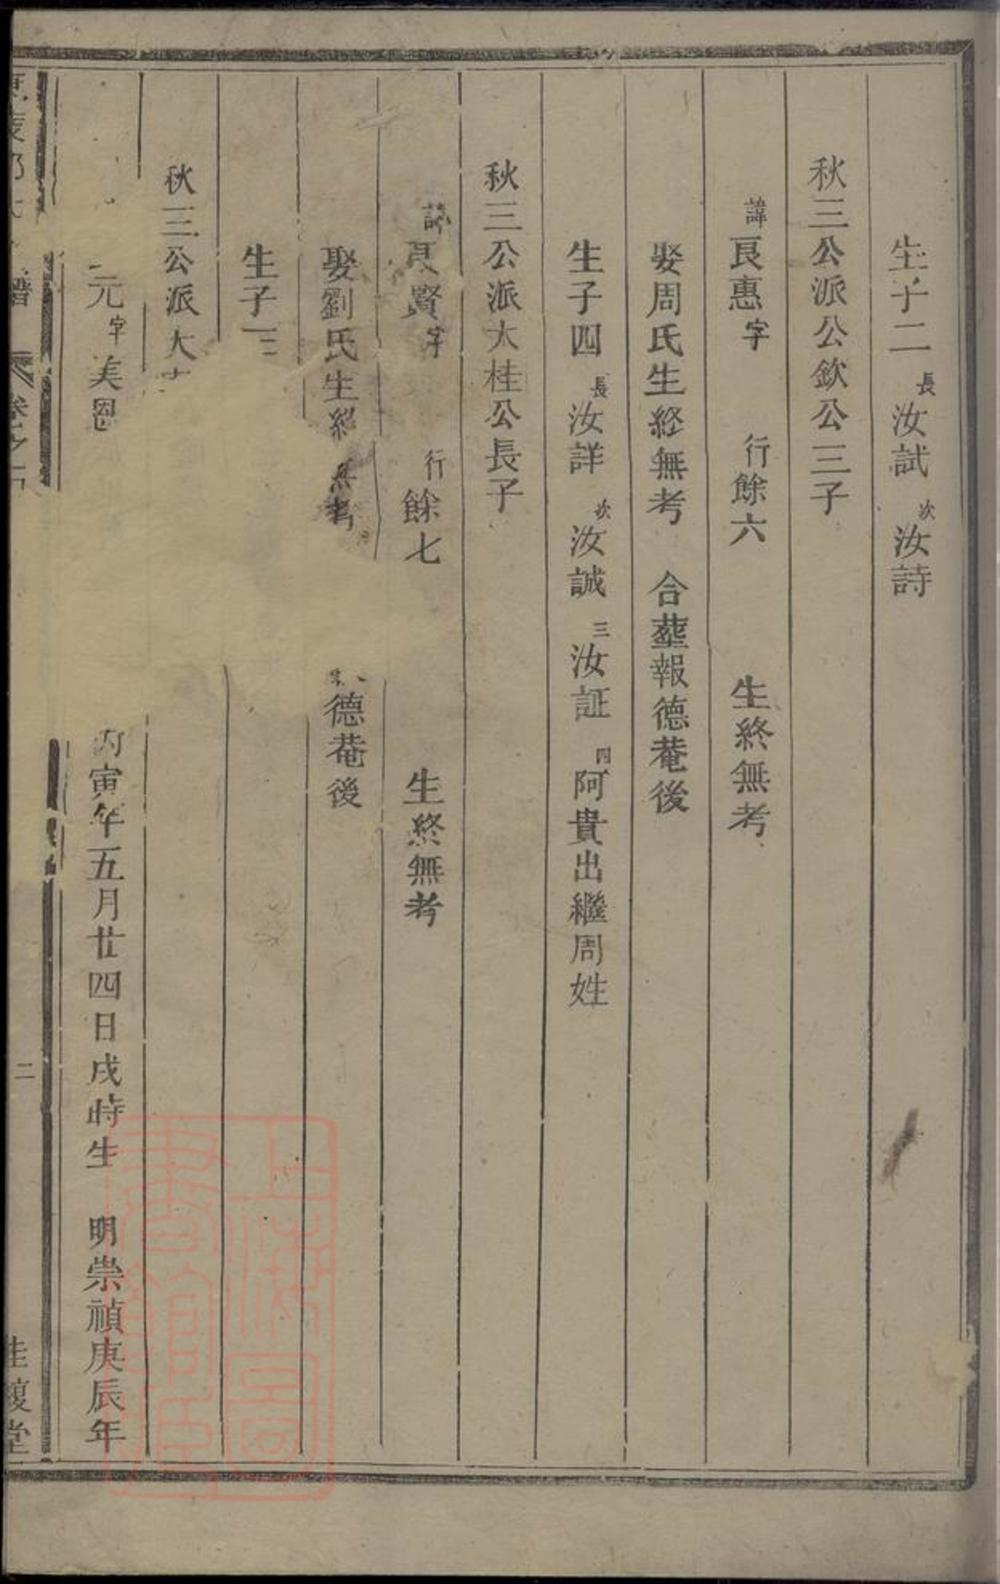 生子二長汝試次汝詩
秋三公派公欽公三子
諱良惠字 行餘六 生終無考
娶周氏生終無考 合塟報德菴後
生子四長汝詳次汝誠三汝証四阿貴出繼周姓
秋三公派大桂公長子
諱良賢字 行餘七 生終無考
娶劉氏生終無考 德菴後
生子
秋三公派大
元字美恩 丙寅年五月廿四日戌時生 明崇禎庚辰年
譜 卷之
二
桂馥堂
上海圖書館藏